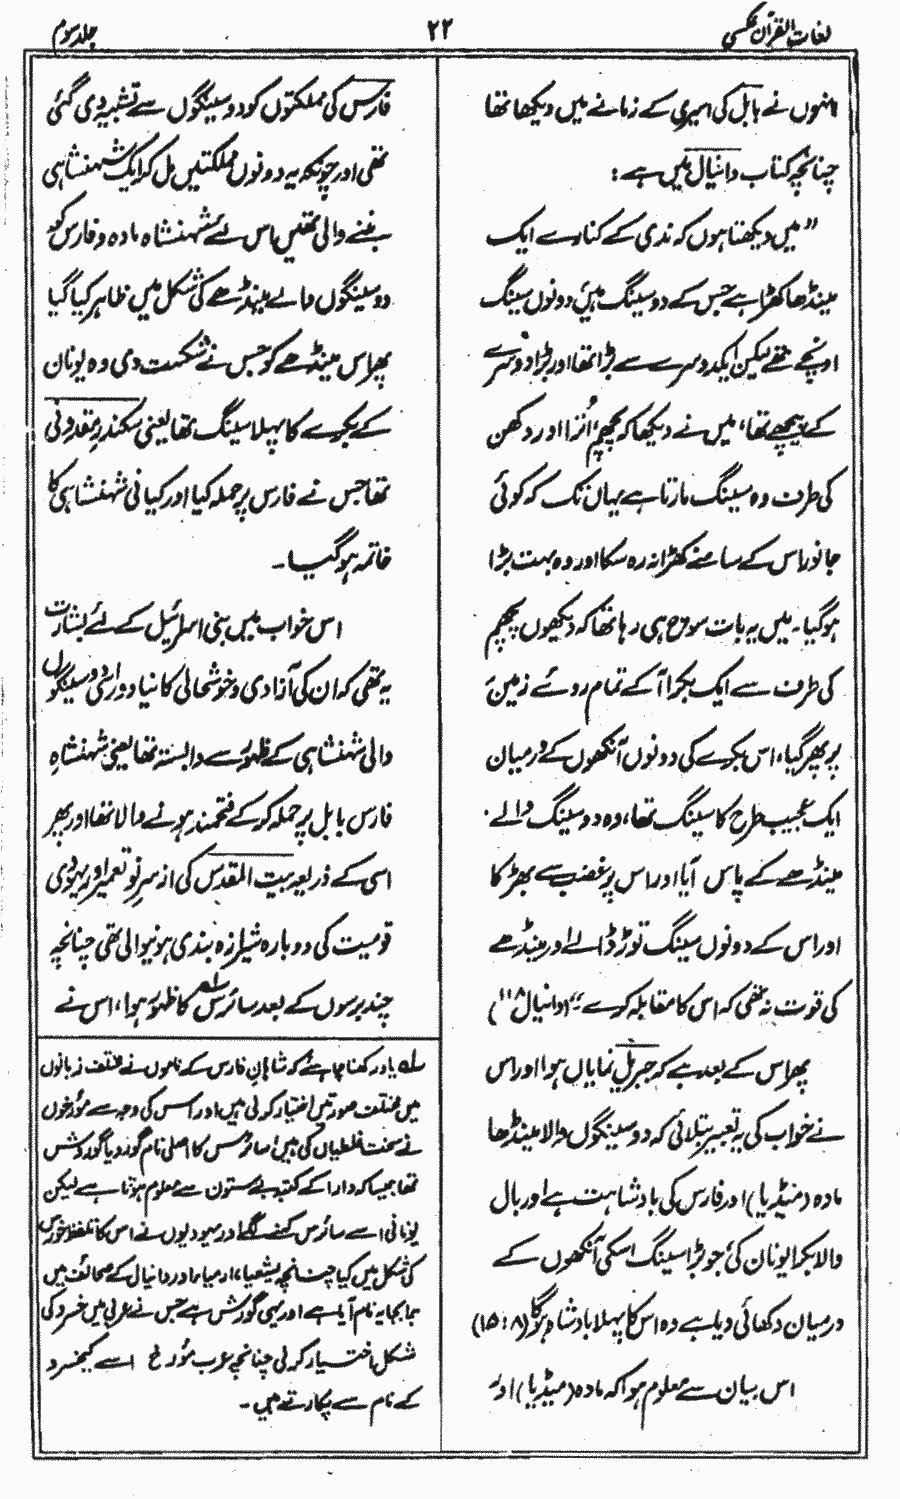 لغات القرآن عکسی
۲۲
جلد سوم
انہوں نے بابل کی اسیری کے زمانے میں دیکھا تھا
چنانچہ کتاب دانیال میں ہے :
”میں دیکھتا ہوں کہ ندی کے کنارے ایک
مینڈھا کھڑا ہے جس کے دو سینگ ہیں، دونوں سینگ
اونچے تھے لیکن ایک دوسرے سے بڑا تھا اور بڑا دوسرے
کے پیچھے تھا، میں نے دیکھا کہ پچھم، اُتر اور دکھن
کی طرف وہ سینگ مارتا ہے یہاں تک کہ کوئی
جانور اس کے سامنے کھڑا نہ رہ سکا اور وہ بہت بڑا
ہوگیا۔ میں یہ بات سوچ ہی رہا تھا کہ دیکھوں پچھم
کی طرف سے ایک بکرا آ کے تمام روئے زمین
پر پھر گیا، اس بکرے کی دونوں آنکھوں کے درمیان
ایک عجیب طرح کا سینگ تھا، وہ دو سینگ والے
مینڈھے کے پاس آیا اور اس پر غضب سے بھڑکا
اور اس کے دونوں سینگ توڑ ڈالے اور مینڈھے
کی قوت نہ تھی کہ اس کا مقابلہ کرے“ (دانیال ۸)
پھر اس کے بعد ہے کہ جبریل نمایاں ہوا اور اس
نے خواب کی یہ تعبیر بتلائی کہ دو سینگوں والا مینڈھا
مادہ (میڈیا) اور فارس کی بادشاہت ہے اور بال
والا بکرا یونان کی، جو بڑا سینگ اسکی آنکھوں کے
درمیان دکھائی دیا ہے وہ اس کا پہلا بادشاہ ہوگا (۸ : ۱۵)
اس بیان سے معلوم ہوا کہ مادہ (میڈیا) اور
فارس کی مملکتوں کو دو سینگوں سے تشبیہ دی گئی
تھی اور چونکہ یہ دونوں مملکتیں مل کر ایک شہنشاہی
بننے والی تھیں اس لئے شہنشاہ مادہ و فارس کو
دو سینگوں والے مینڈھے کی شکل میں ظاہر کیا گیا
پھر اس مینڈھے کو جس نے شکست دی وہ یونان
کے بکرے کا پہلا سینگ تھا یعنی سکندر مقدونی
تھا جس نے فارس پر حملہ کیا اور کیانی شہنشاہی کا
خاتمہ ہو گیا ۔
اس خواب میں بنی اسرائیل کے لئے بشارت
یہ تھی کہ ان کی آزادی و خوشحالی کا نیا دور اسی دو سینگوں
والی شہنشاہی کے ظہور سے وابستہ تھا یعنی شہنشاہِ
فارس بابل پر حملہ کر کے فتحمند ہونے والا تھا اور پھر
اسی کے ذریعہ بیت المقدس کی از سر نو تعمیر اور یہودی
قومیت کی دوبارہ شیرازہ بندی ہونیوالی تھی چنانچہ
چند برسوں کے بعد سائرس لہ کا ظہور ہوا، اس نے
لہ یاد رکھنا چاہئے کہ شاہانِ فارس کے ناموں نے مختلف زبانوں
میں مختلف صورتیں اختیار کر لی ہیں اور اس کی وجہ سے مؤرخوں
نے سخت غلطیاں کی ہیں، سائرس کا اصلی نام گورو یا گوروش
تھا جیسا کہ دارا کے کتبہ بے ستون سے معلوم ہوتا ہے لیکن
یونانی اسے سائرس کہنے لگے اور یہودیوں نے اس کا تلفظ خورس
کی شکل میں کیا چنانچہ یشعیاہ، ارمیاہ اور دانیال کے صحائف میں
جابجا یہ نام آیا ہے اور یہی گورش ہے جس نے عربی میں خسرو کی
شکل اختیار کر لی چنانچہ عرب مؤرخ اسے کیخسرو
کے نام سے پکارتے ہیں ۔